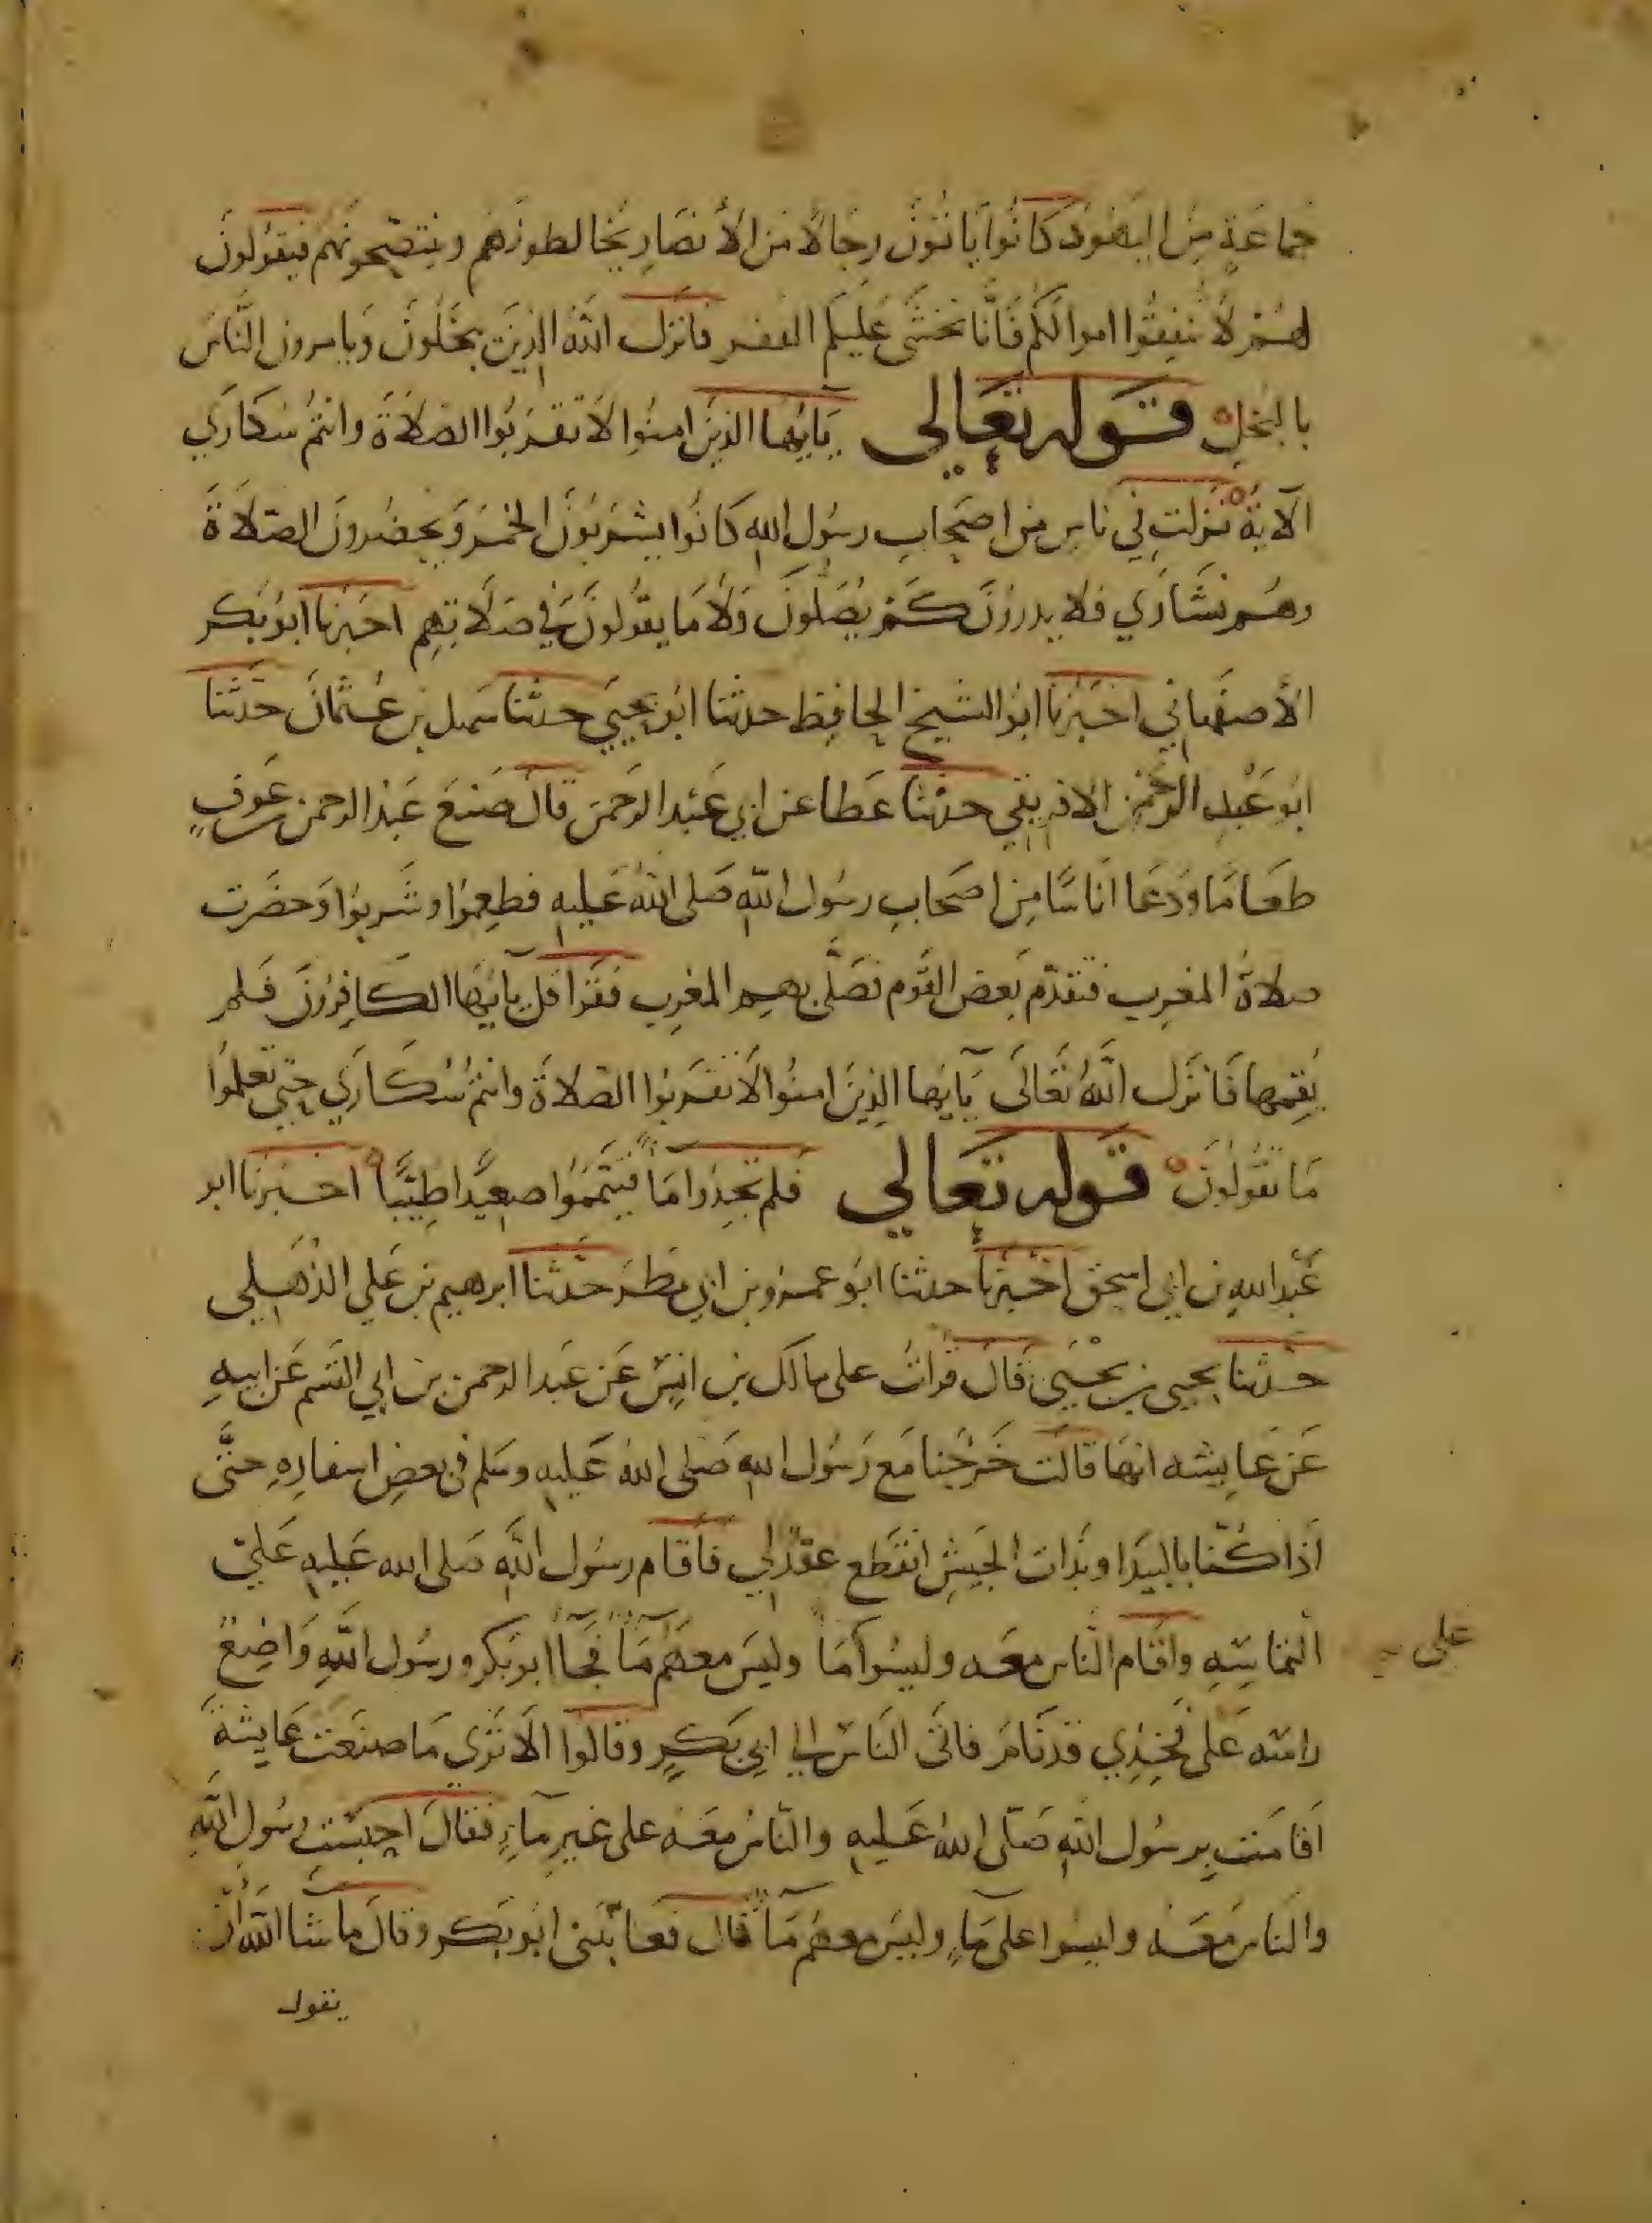 جماعة من اليهود كانوا ياتون رجالا من الأنصار يخالطونهم وينتصحونهم فيقولون
لهم لا تنفقوا اموالكم فانا نخشى عليكم الفقر فانزل الله الذين يبخلون ويامرون الناس
بالبخل قوله تعالي يايها الذين امنوا لا تقربوا الصلاة وانتم سكاري
الآية نزلت في ناس من اصحاب رسول الله كانوا يشربون الخمر ويحضرون الصلاة
وهم نشاوي فلا يدرون كم يصلون ولا ما يقولون في صلاتهم اخبرنا ابو بكر
الأصفهاني اخبرنا ابو الشيخ الحافظ حدثنا ابو يحيي حدثنا سهل بن عثمان حدثنا
ابو عبد الرحمن الافريقي حدثنا عطا عن ابي عبد الرحمن قال صنع عبد الرحمن بن عوف
طعاما ودعا اناسا من اصحاب رسول الله صلى الله عليه فطعموا وشربوا وحضرت
صلاة المغرب فتقدم بعض القوم فصلى بهم المغرب فقرا قل يآيها الكافرون فلم
يقمها فانزل الله تعالى يآيها الذين امنوا لا تقربوا الصلاة وانتم سكاري حتي تعلموا
ما تقولون قوله تعالي فلم تجدوا مآ فتيمموا صعيدا طيبا اخبرنا ابو
عبد الله بن ابي اسحق اخبرنا حدثنا ابو عمرو بن ابي مطر حدثنا ابرهيم بن علي الذهلي
حدثنا يحيى بن يحيى قال قرات على مالك بن انس عن عبد الرحمن بن ابي القسم عن ابيه
عن عايشه انها قالت خرجنا مع رسول الله صلى الله عليه وسلم في بعض اسفاره حتى
اذا كنا بالبيدا وبذات الجيش انقطع عقد لي فاقام رسول الله صلى الله عليه علي
التماسه واقام الناس معه وليسوا مآ وليس معهم مآ فجآ ابو بكر ورسول الله واضع
على
راسه على فخذي قد نام فاتى الناس الي ابي بكر وقالوا الا ترى ما صنعت عايشة
اقامت برسول الله صلى الله عليه والناس معه على غير مآء فقال احبست رسول الله
والناس معه وليسوا على مآء وليس معهم مآ قال فعاتبني ابو بكر وقال ما شا الله ان
يقول